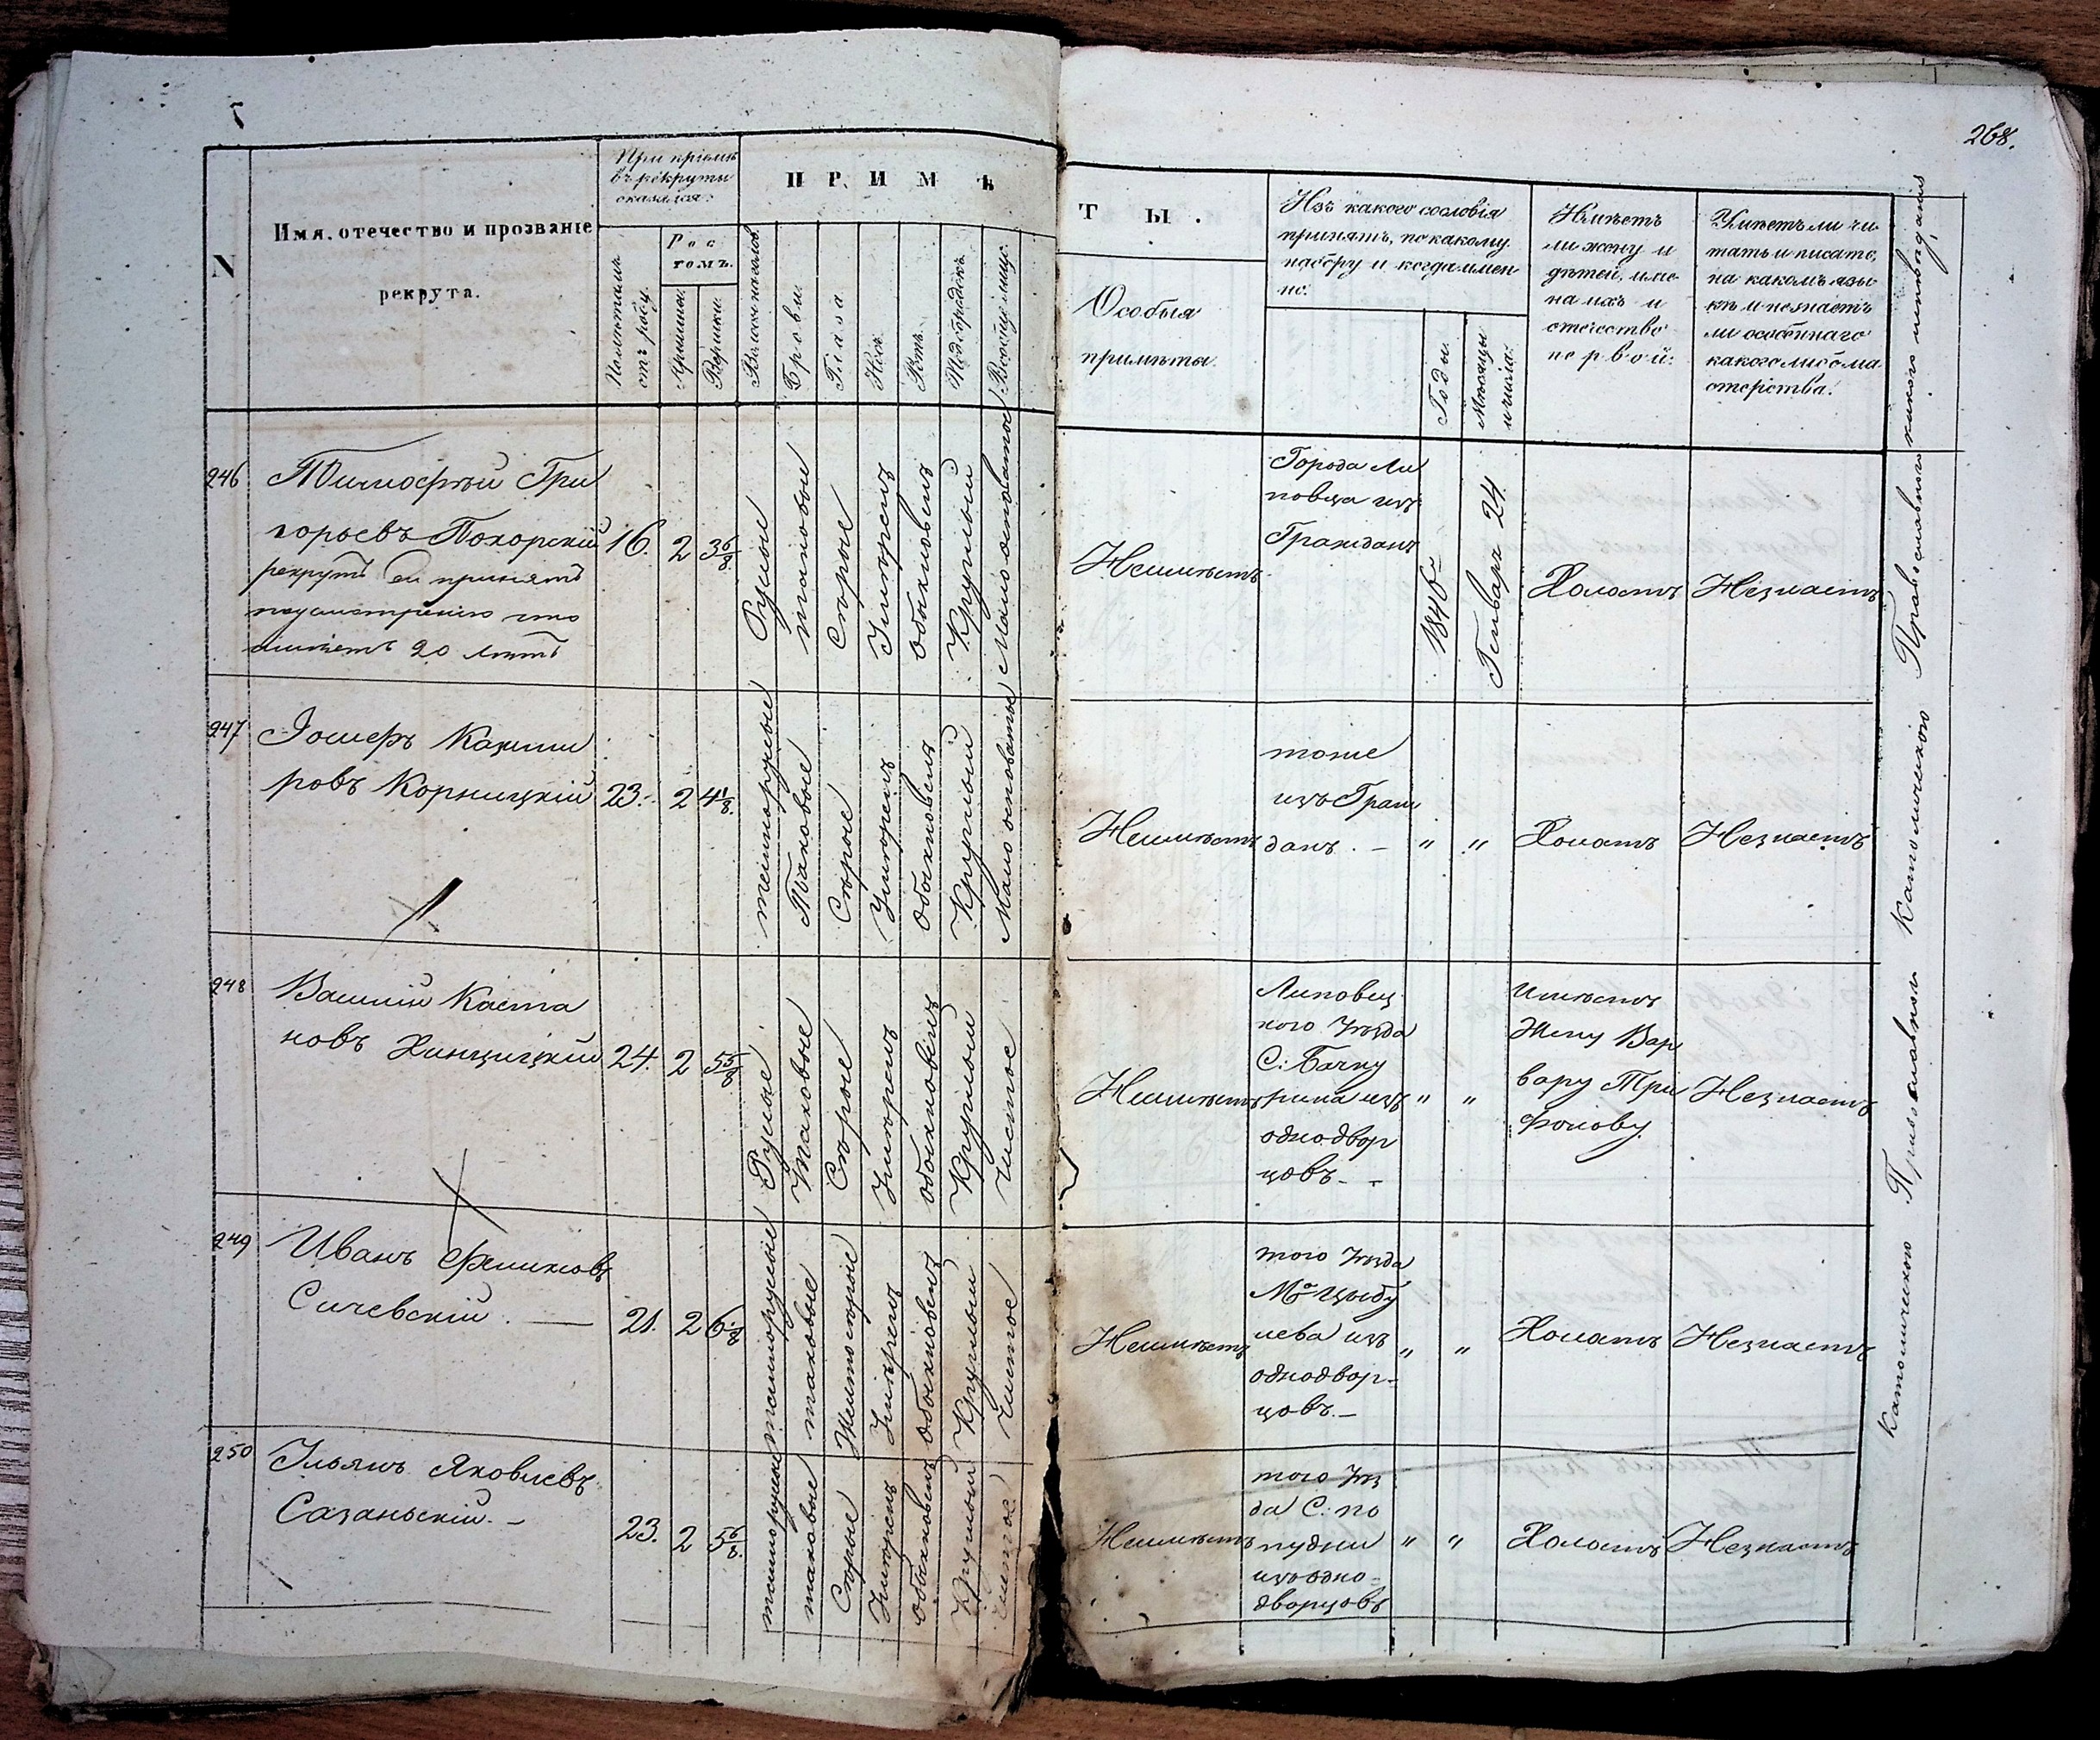 268.
N
Имя, отечество и прозваніе
рекрута.
При пріемѣ
въ рекруты
оказался:
По лѣтамъ
отъ роду.
Рос
томъ.
Аршины.
Вершки.
ПРИМѢ
Брови.
Глаза
Носъ
Ротъ
Подбородокъ
Вообще лицо.
ТЫ.
Особыя
примѣты.
Изъ какого сословія
принятъ, по какому
набору и когда имен
но.
Годы.
Мѣсяцы
и числа.
Имѣетъ
ли жену и
дѣтей, име
на ихъ и
отечество
первой:
Умѣетъ ли чи
тать и писать,
на какомъ язы
кѣ и не знаетъ
ли особеннаго
какого либо ма
стерства.
какого исповѣданія
246
Тимофей Гри
горьевъ Похорскій
рекрутъ сей принятъ
по усмотрѣнію что
имѣетъ 20 лѣтъ
16.
2
3 6/8
Русые
таковые
Сѣрые
Умѣренъ
Обыкновенъ
Круглый
Мало осповатое
Неимѣетъ
Города Ли
повца изъ
Гражданъ
1846
Генваря 24
Холостъ
Незнаетъ
Православного
247
Іосифъ Казими
ровъ Корницкій
23.
2
4 1/8.
темнорусые
Таковые
Сѣрые
Умѣренъ
Обыкновенъ
Круглый
Мало осповатое
Неимѣетъ
тоже
изъ Граж
данъ. –
"
"
Холостъ
Незнаетъ
Католического
248
Василій Каета
новъ Хинцицкій
24.
2
5 5/8
Русые
Таковые
Сѣрые
Умѣренъ
обыкновенъ
Круглый
Чистое
Неимѣетъ
Липовец
кого Уезда
С: Бачку
рина изъ
однодвор
цовъ. –
"
"
Имѣетъ
Жену Вар
вару Три
фонову
Незнаетъ
Православной
249
Иванъ Феликсовъ
Сичевскій. —
21.
2
6 1/8
темнорусые
таковые
Желтосѣрые
Умѣренъ
Обыкновенъ
Круглый
Чистое
Неимѣетъ
того Уезда
М. Цыбу
лева изъ
однодвор-
цовъ. –
"
"
Холостъ
Незнаетъ
Католического
250
Ульянъ Яковлевъ
Сазанскій. –
23.
2
5 6/8.
темнорусые
таковые
Сѣрые
Умѣренъ
обыкновенъ
Круглый
Чистое
Неимѣетъ
того Уез
да С: По
пудни
изъ одно-
дворцовъ
"
"
Холостъ
Незнаетъ